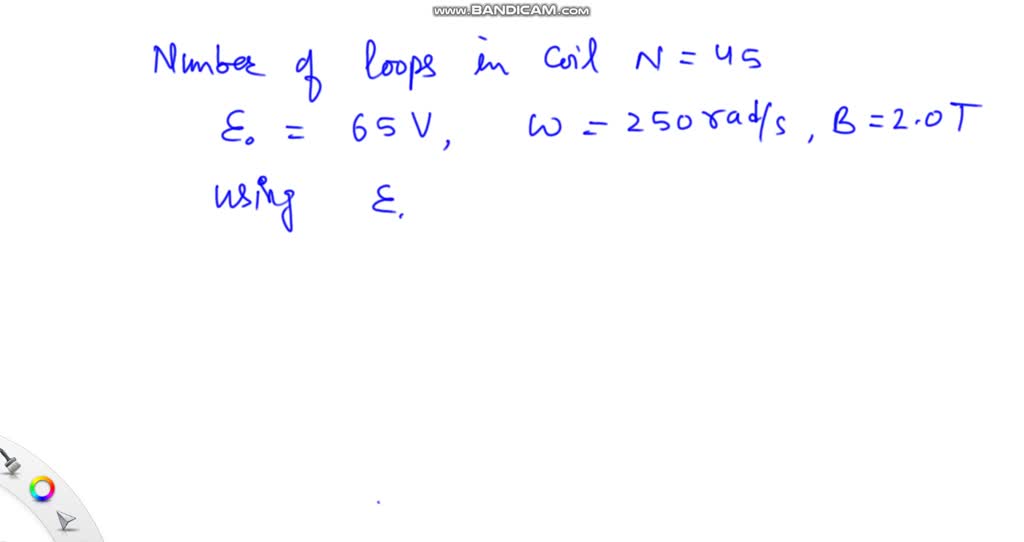 www.BANDICAM.com
Number of loops in coil N = 45
ε₀ = 65 V, ω = 250 rad/s, B = 2.0T
using ε.